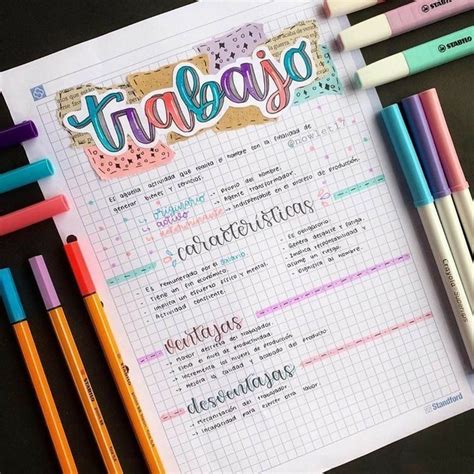 trabajo
Es aquella actividad que realiza el hombre con la finalidad de
generar bienes y servicios.
@nowlet.17
→ originario
→ activo
→ Propio del hombre.
→ Agente transformador.
→ Indispensable en el proceso de producción.
características
→ Es remunerado por el salario
→ Tiene un fin económico.
→ Implica un esfuerzo físico y mental.
→ Actividad consciente.
→ Es obligatorio.
→ Genera desgaste y fatiga
→ Implica responsabilidad y
asume un riesgo.
→ Dignifica al hombre.
ventajas
→ Mayor destreza del trabajador.
→ Eleva el nivel de productividad.
→ Incrementa la producción
→ Mejora la calidad y acabado del producto.
desventajas
→ Mecanización del trabajador
→ Incapacidad para ejercer otra labor.
Standford
STABILO
STABILO
Crayola SuperTips